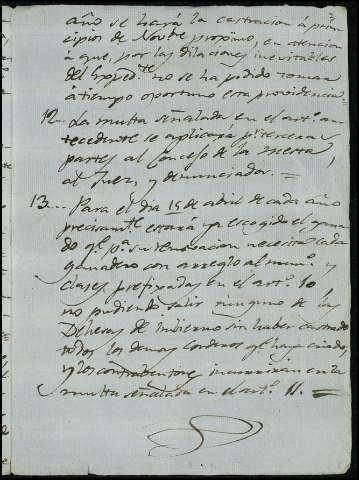 año se hará la castracion á prin-
cipios de Novbe. proximo, en atencion
á que, por las dilaciones inevitables
del Expedte. no se ha podido tomar
á tiempo oportuno esta providencia.
12... La multa señalada en el arto. an-
tecedente se aplicara pr. terceras
partes al Concejo de la Mesta,
al Juez, y denunciador. =
13... Para el dia 15 de abril de cada año
precisamte. estará ya escogido el gana-
do qe. pa. su renovacion necesita cada
ganadero con arreglo al numo. y
clases prefixadas en el arto. 10
no pudiendo salir ninguno de las
Dehesas de Imbierno sin haber castrado
todos los demas corderos qe. haya criado,
y los contraventores incurriran en la
multa señalada en el arto. 11. =